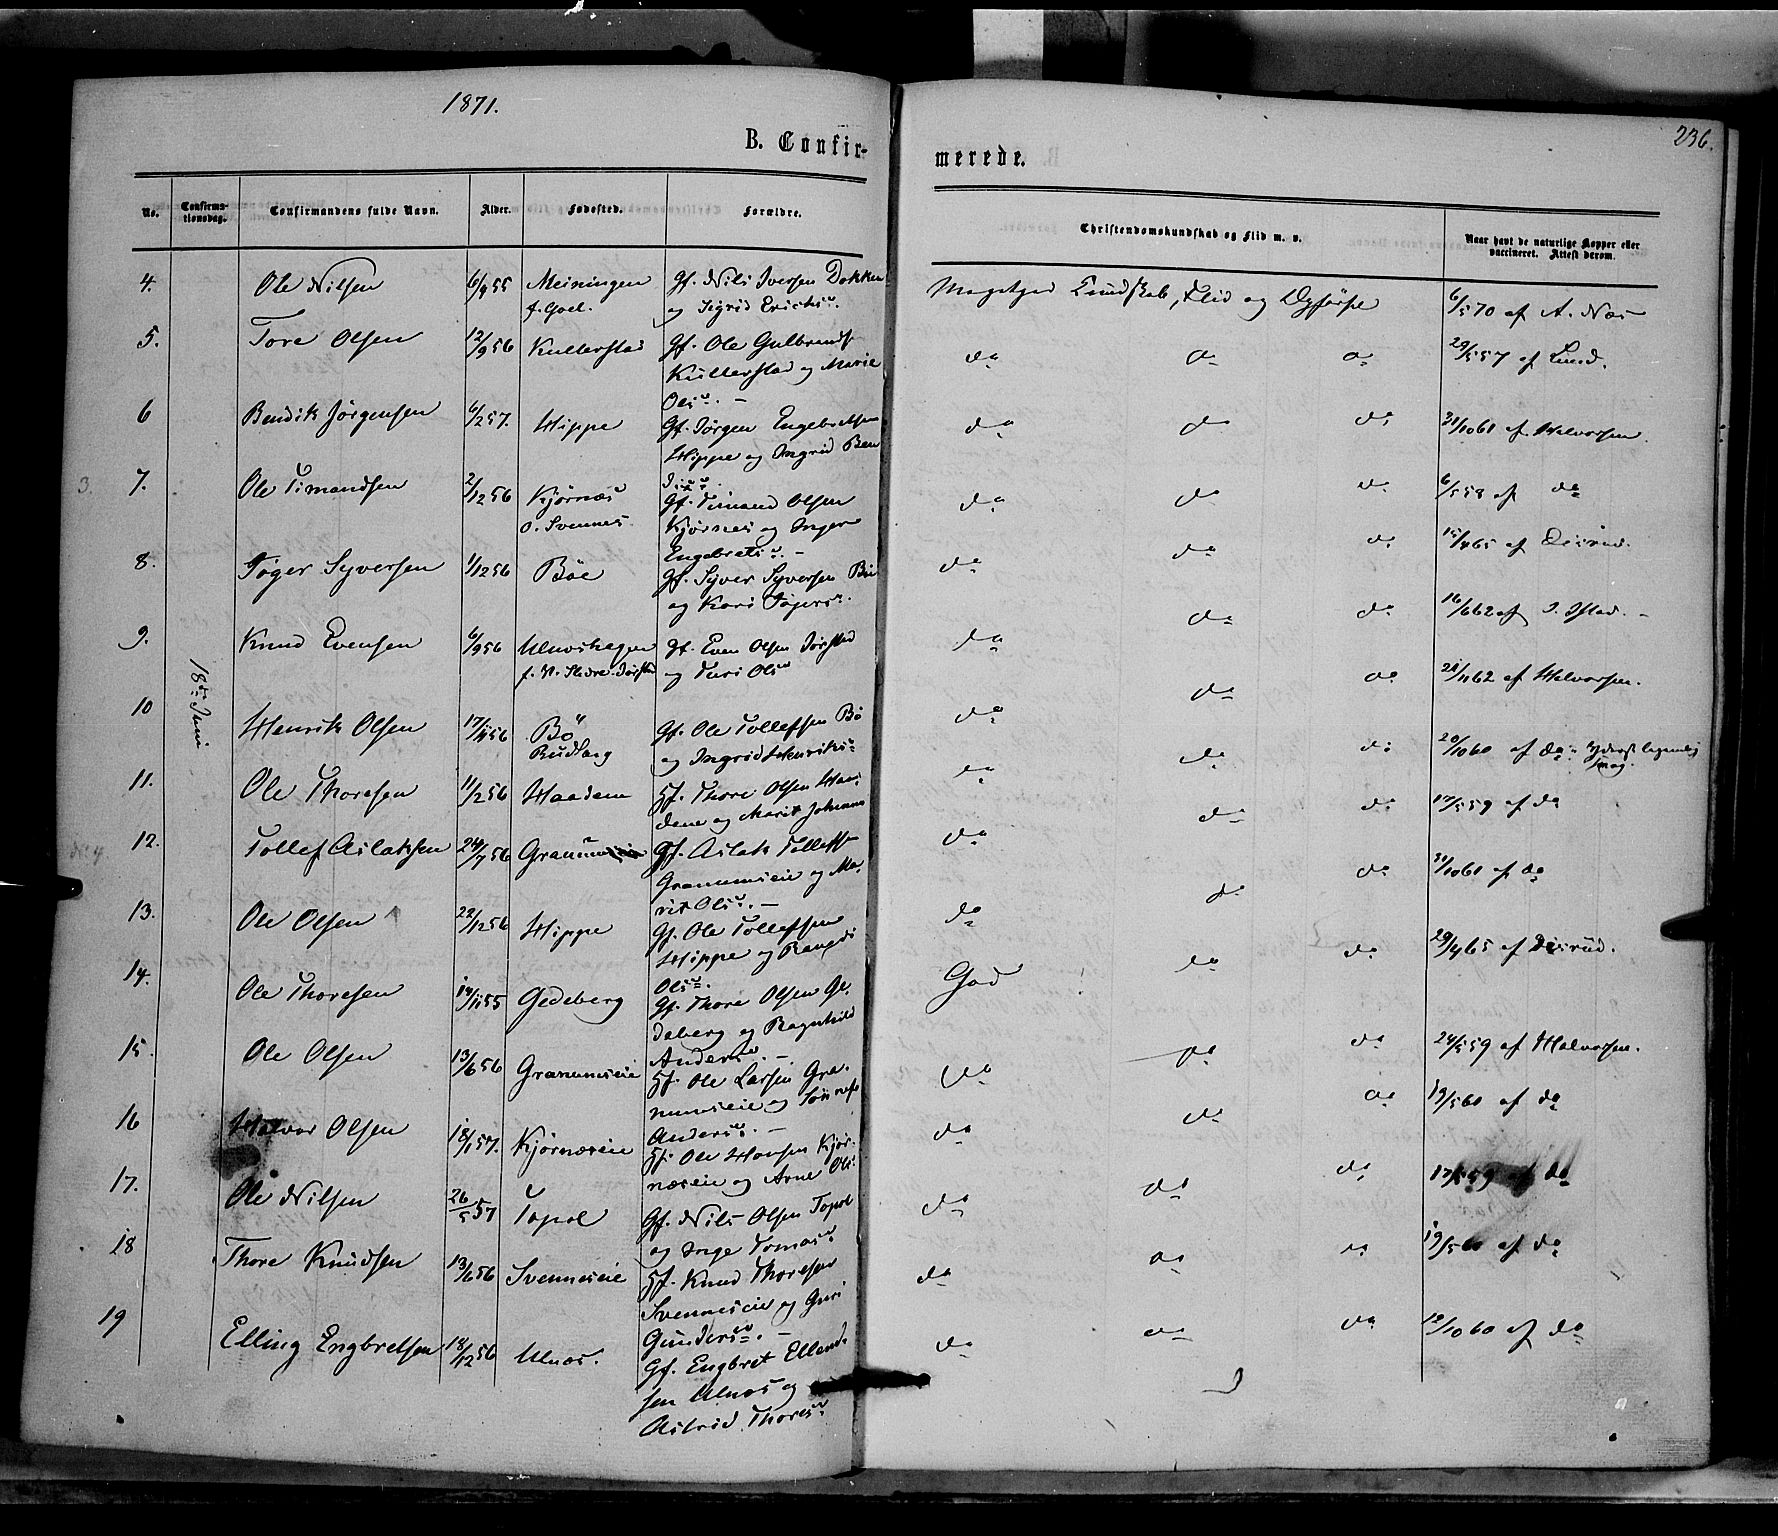 1871.
236.
B. Confir-
merede.
No.
Confirma-
tionsdag.
Confirmandens fulde Navn.
Alder.
Fødested.
Forældre.
Christendomskundskab og Flid m. v.
Naar havt de naturlige Kopper eller
vaccineret. Attest derom.
18de Juni
4. Ole Nilsen 6/9 55 Meiningen
f. Goel.
Gf. Nils Iversen Dokken
og Sigrid Ericksn.
Megetgod Kundskab, Flid og Opførse
6/5 70 af A. Næs
5. Tore Olsen 12/9 56 Kullerstad
Gf. Ole Gulbrands
Kullerstad og Marie
Olsn. -
do do do 29/5 57 af Lund.
6 Bendik Jörgensen 6/2 57. Hippe
Gf. Jörgen Engebretsen
Hippe og Ingrid Ben
disn.
do do do 31/10 61 af Halvorsen.
3.
7. Ole Timandsen 2/12 56 Kjørnæs
o. Svennes.
Gf. Timand Olsen
Kjørnes og Inger
Engebretsn. -
do do do 6/5 58 af do
8. Töger Syversen 1/12 56 Böe
Gf. Syver Syversen Böe
og Kari Tögersn.
do do do 15/4 65 af Disrud.
9. Knud Evensen 6/9 56
Gf. Even Olsen Jörstad
og Turi Olsn
do do do 16/6 62 af
10 Henrik Olsen 17/11 56 Bö
Rudlang
Gf. Ole Tollefsen Bö
og Ingrid Henriksn
do do do 21/11 62 af Halvorsen.
11. Ole Thoresen 11/2 56 Haadem
Gf. Thore Olsen Haa
dem og Marit Johannes
do do do 20/10 60 af do
12. Tollef Aslaksen 24/7 56 Granumseie
Gf. Aslak Tollefs
Granumseie og Ma-
rit Olsn. -
do do do 17/5 59 af do
13. Ole Olsen 22/12 56 Hippe
Gf. Ole Tollefsen
Hippe og Rangdi
Olsn.
do do do 31/10 61 af do
14. Ole Thoresen 14/11 55 Gedeberg
Gf. Thore Olsen Ge-
deberg og Ragnhild
Andersn. -
God do do 29/4 65 af Disrud.
15. Ole Olsen 13/6 56 Granumseie
Gf. Ole Larsen Gra-
numseie og
Andersn. -
do do do 24/5 59 af Halvorsen.
16 Halvor Olsen 18/1 57. Kjørnæseie
Gf. Ole Hansen Kjør-
næseie og Arne Ols
do do do 19/5 60 af do
17. Ole Nilsen 26/5 57 Fopol
Gf. Nils Olsen Fopol
og Inge Tomasn
do do do 17/5 59 af do
18 Thore Knudsen 13/6 56 Svenneseie
Gf. Knud Thoresen
Svenneseie og Guri
Gundersn. -
do do do 19/5 60 af do
19 Elling Engbretsen 18/12 56 Ulnæs.
Gf. Engbret Ellend-
sen Ulnæs og
Astrid Thoresn
do do do 12/10 60 af do